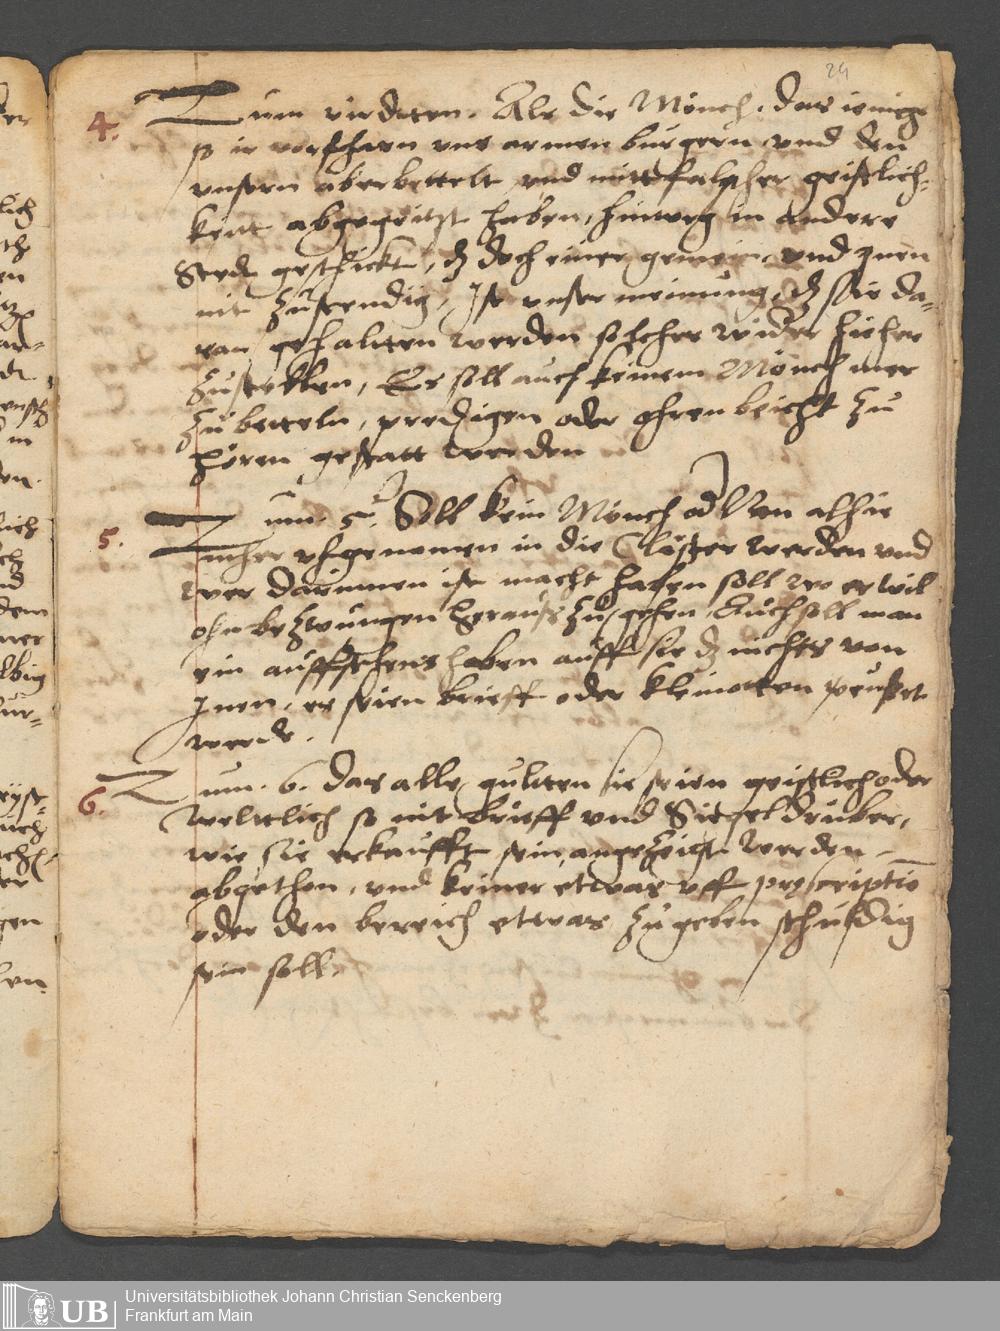 24
4. Zum vierdten. Als die Mönch, das ienige
so ir vorfharn uns armen burgern und den
unsern aberbettelt und mitt falscher geistlich¬
keit abgegeitzt haben, hinweg in andere
Stedt geschickt, dz doch einer gemein, und Inen
nit zustendig, Ist unser meinung, dz sie da¬
ran gehaltten werden solches wider hieher
zustellen, Es soll auch keinem Mönch mer
zu betteln, predigen oder ohren beicht zu
hören gestatt werden
5. Zum. 5. Soll kein Mönch od Non alhie
mher uffgenomen in die Clöster werden und
wer darinnen ist macht haben soll wo er wil
ohn bezwungen herauß zu gehen, Auch soll man
ein auffsehens haben auff sie dz nichts von
Inen, es seien brieff oder kleinotten
werde.
6. Zum. 6. das alle gultten sie seien geistlich oder
weltlich so nit brieff und Siegel druber,
wie sie erkaufft sein, angezeigt werden
abgethon, und keiner etwas uff prescriptio
oder den bereich ettwas zu geben schuldig
sein soll.
UB
Universitätsbibliothek Johann Christian Senckenberg
Frankfurt am Main